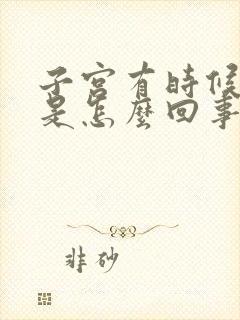 子宫有時候
是怎麼回事
非砂